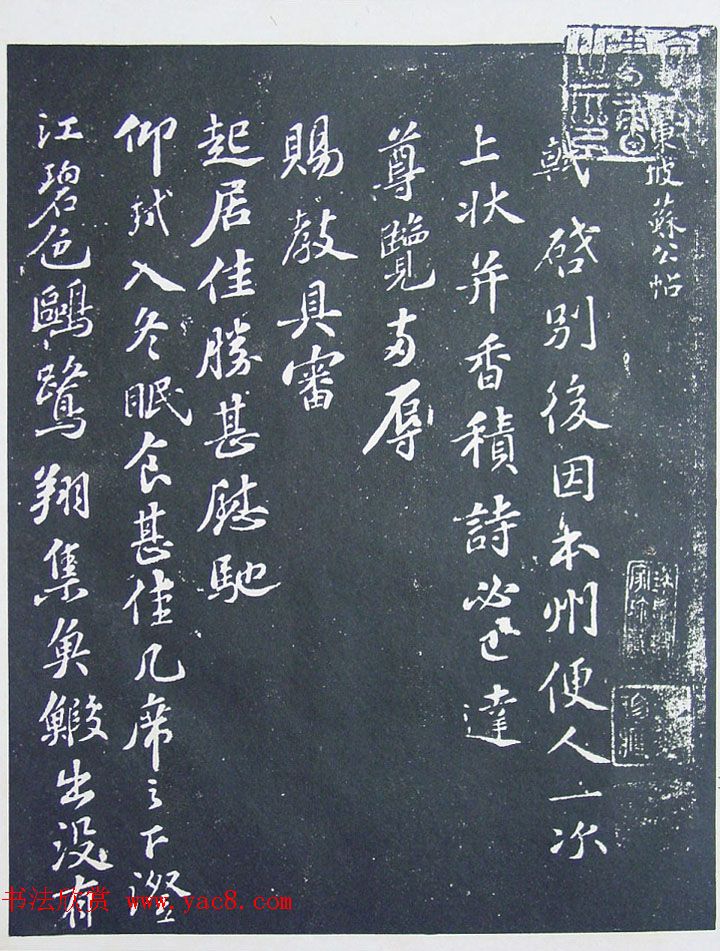 東坡蘇公帖
軾啓別後因本州便人一次
上狀并香積詩必已達
尊覽專辱
賜教具審
起居佳勝甚慰馳
仰軾入冬眠食甚佳几席之下澄
江碧色鷗鷺翔集魚鰕出没有
书法欣赏 www.yac8.com